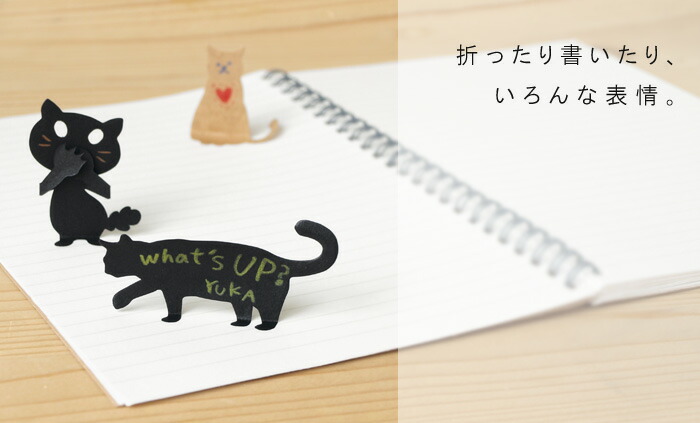 折ったり書いたり、
いろんな表情。
what's UP?
YUKA